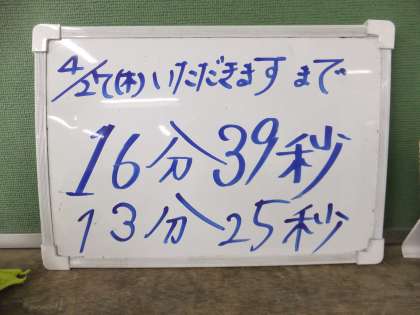 4/27(木)いただきますまで
16分39秒
13分25秒